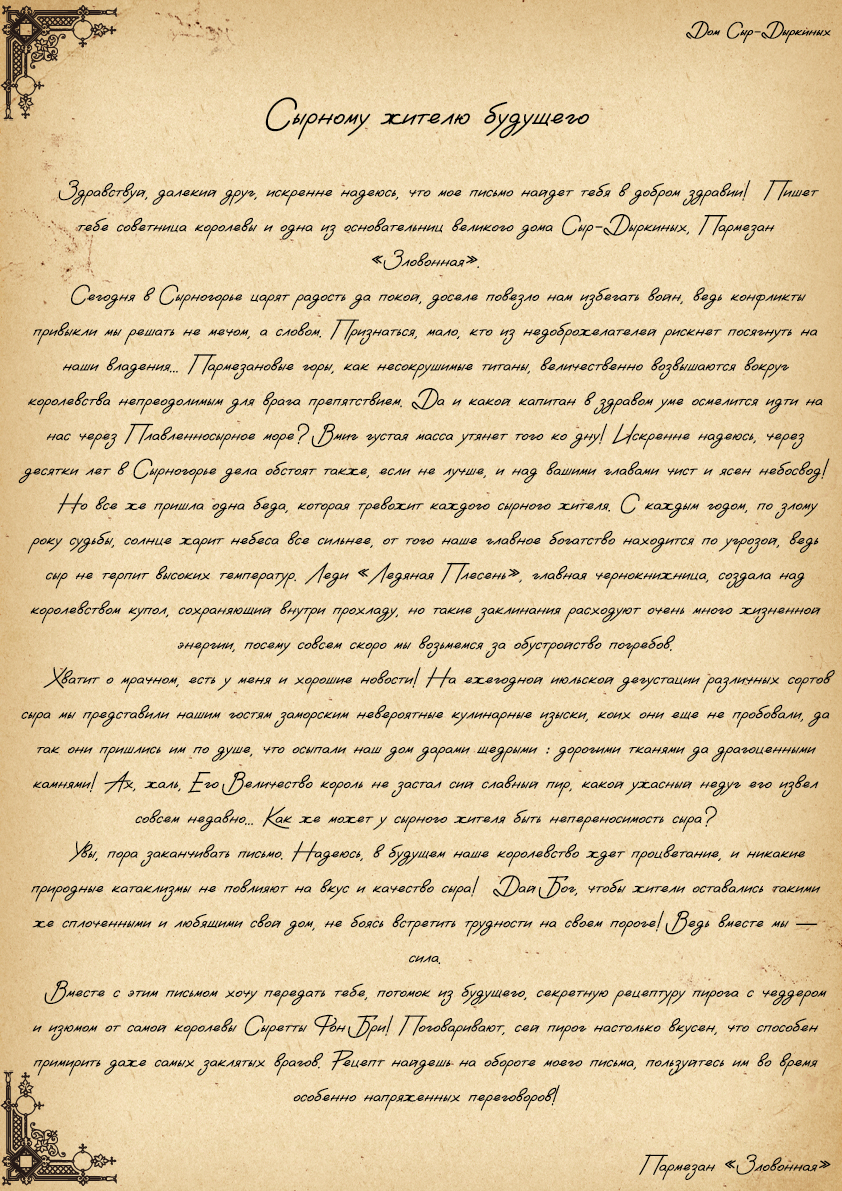 Дом Сыр-Дыркиных
Сырному жителю будущего
Здравствуй, далекий друг, искренне надеюсь, что мое письмо найдет тебя в добром здравии! Пишет
тебе советница королевы и одна из основательниц великого дома Сыр-Дыркиных, Пармезан
«Зловонная».
Сегодня в Сырногорье царят радость да покой, доселе повезло нам избегать войн, ведь конфликты
привыкли мы решать не мечом, а словом. Признаться, мало, кто из недоброжелателей рискнет посягнуть на
наши владения... Пармезановые горы, как несокрушимые титаны, величественно возвышаются вокруг
королевства непреодолимым для врага препятствием. Да и какой капитан в здравом уме осмелится идти на
нас через Плавленносырное море? Вмиг густая масса утянет того ко дну! Искренне надеюсь, через
десятки лет в Сырногорье дела обстоят также, если не лучше, и над вашими главами чист и ясен небосвод!
Но все же пришла одна беда, которая тревожит каждого сырного жителя. С каждым годом, по злому
року судьбы, солнце жарит небеса все сильнее, от того наше главное богатство находится по угрозой, ведь
сыр не терпит высоких температур. Леди «Ледяная Плесень», главная чернокнижница, создала над
королевством купол, сохраняющий внутри прохладу, но такие заклинания расходуют очень много жизненной
энергии, посему совсем скоро мы возьмемся за обустройство погребов.
Хватит о мрачном, есть у меня и хорошие новости! На ежегодной июльской дегустации различных сортов
сыра мы представили нашим гостям заморским невероятные кулинарные изыски, коих они еще не пробовали, да
так они пришлись им по душе, что осыпали наш дом дарами щедрыми : дорогими тканями да драгоценными
камнями! Ах, жаль, Его Величество король не застал сий славный пир, какой ужасный недуг его извел
совсем недавно... Как же может у сырного жителя быть непереносимость сыра?
Увы, пора заканчивать письмо. Надеюсь, в будущем наше королевство ждет процветание, и никакие
природные катаклизмы не повлияют на вкус и качество сыра! Дай Бог, чтобы жители оставались такими
же сплоченными и любящими свой дом, не боясь встретить трудности на своем пороге! Ведь вместе мы —
сила.
Вместе с этим письмом хочу передать тебе, потомок из будущего, секретную рецептуру пирога с чеддером
и изюмом от самой королевы Сыретты Фон Бри! Поговаривают, сей пирог настолько вкусен, что способен
примирить даже самых заклятых врагов. Рецепт найдешь на обороте моего письма, пользуйтесь им во время
особенно напряженных переговоров!
Пармезан «Зловонная»